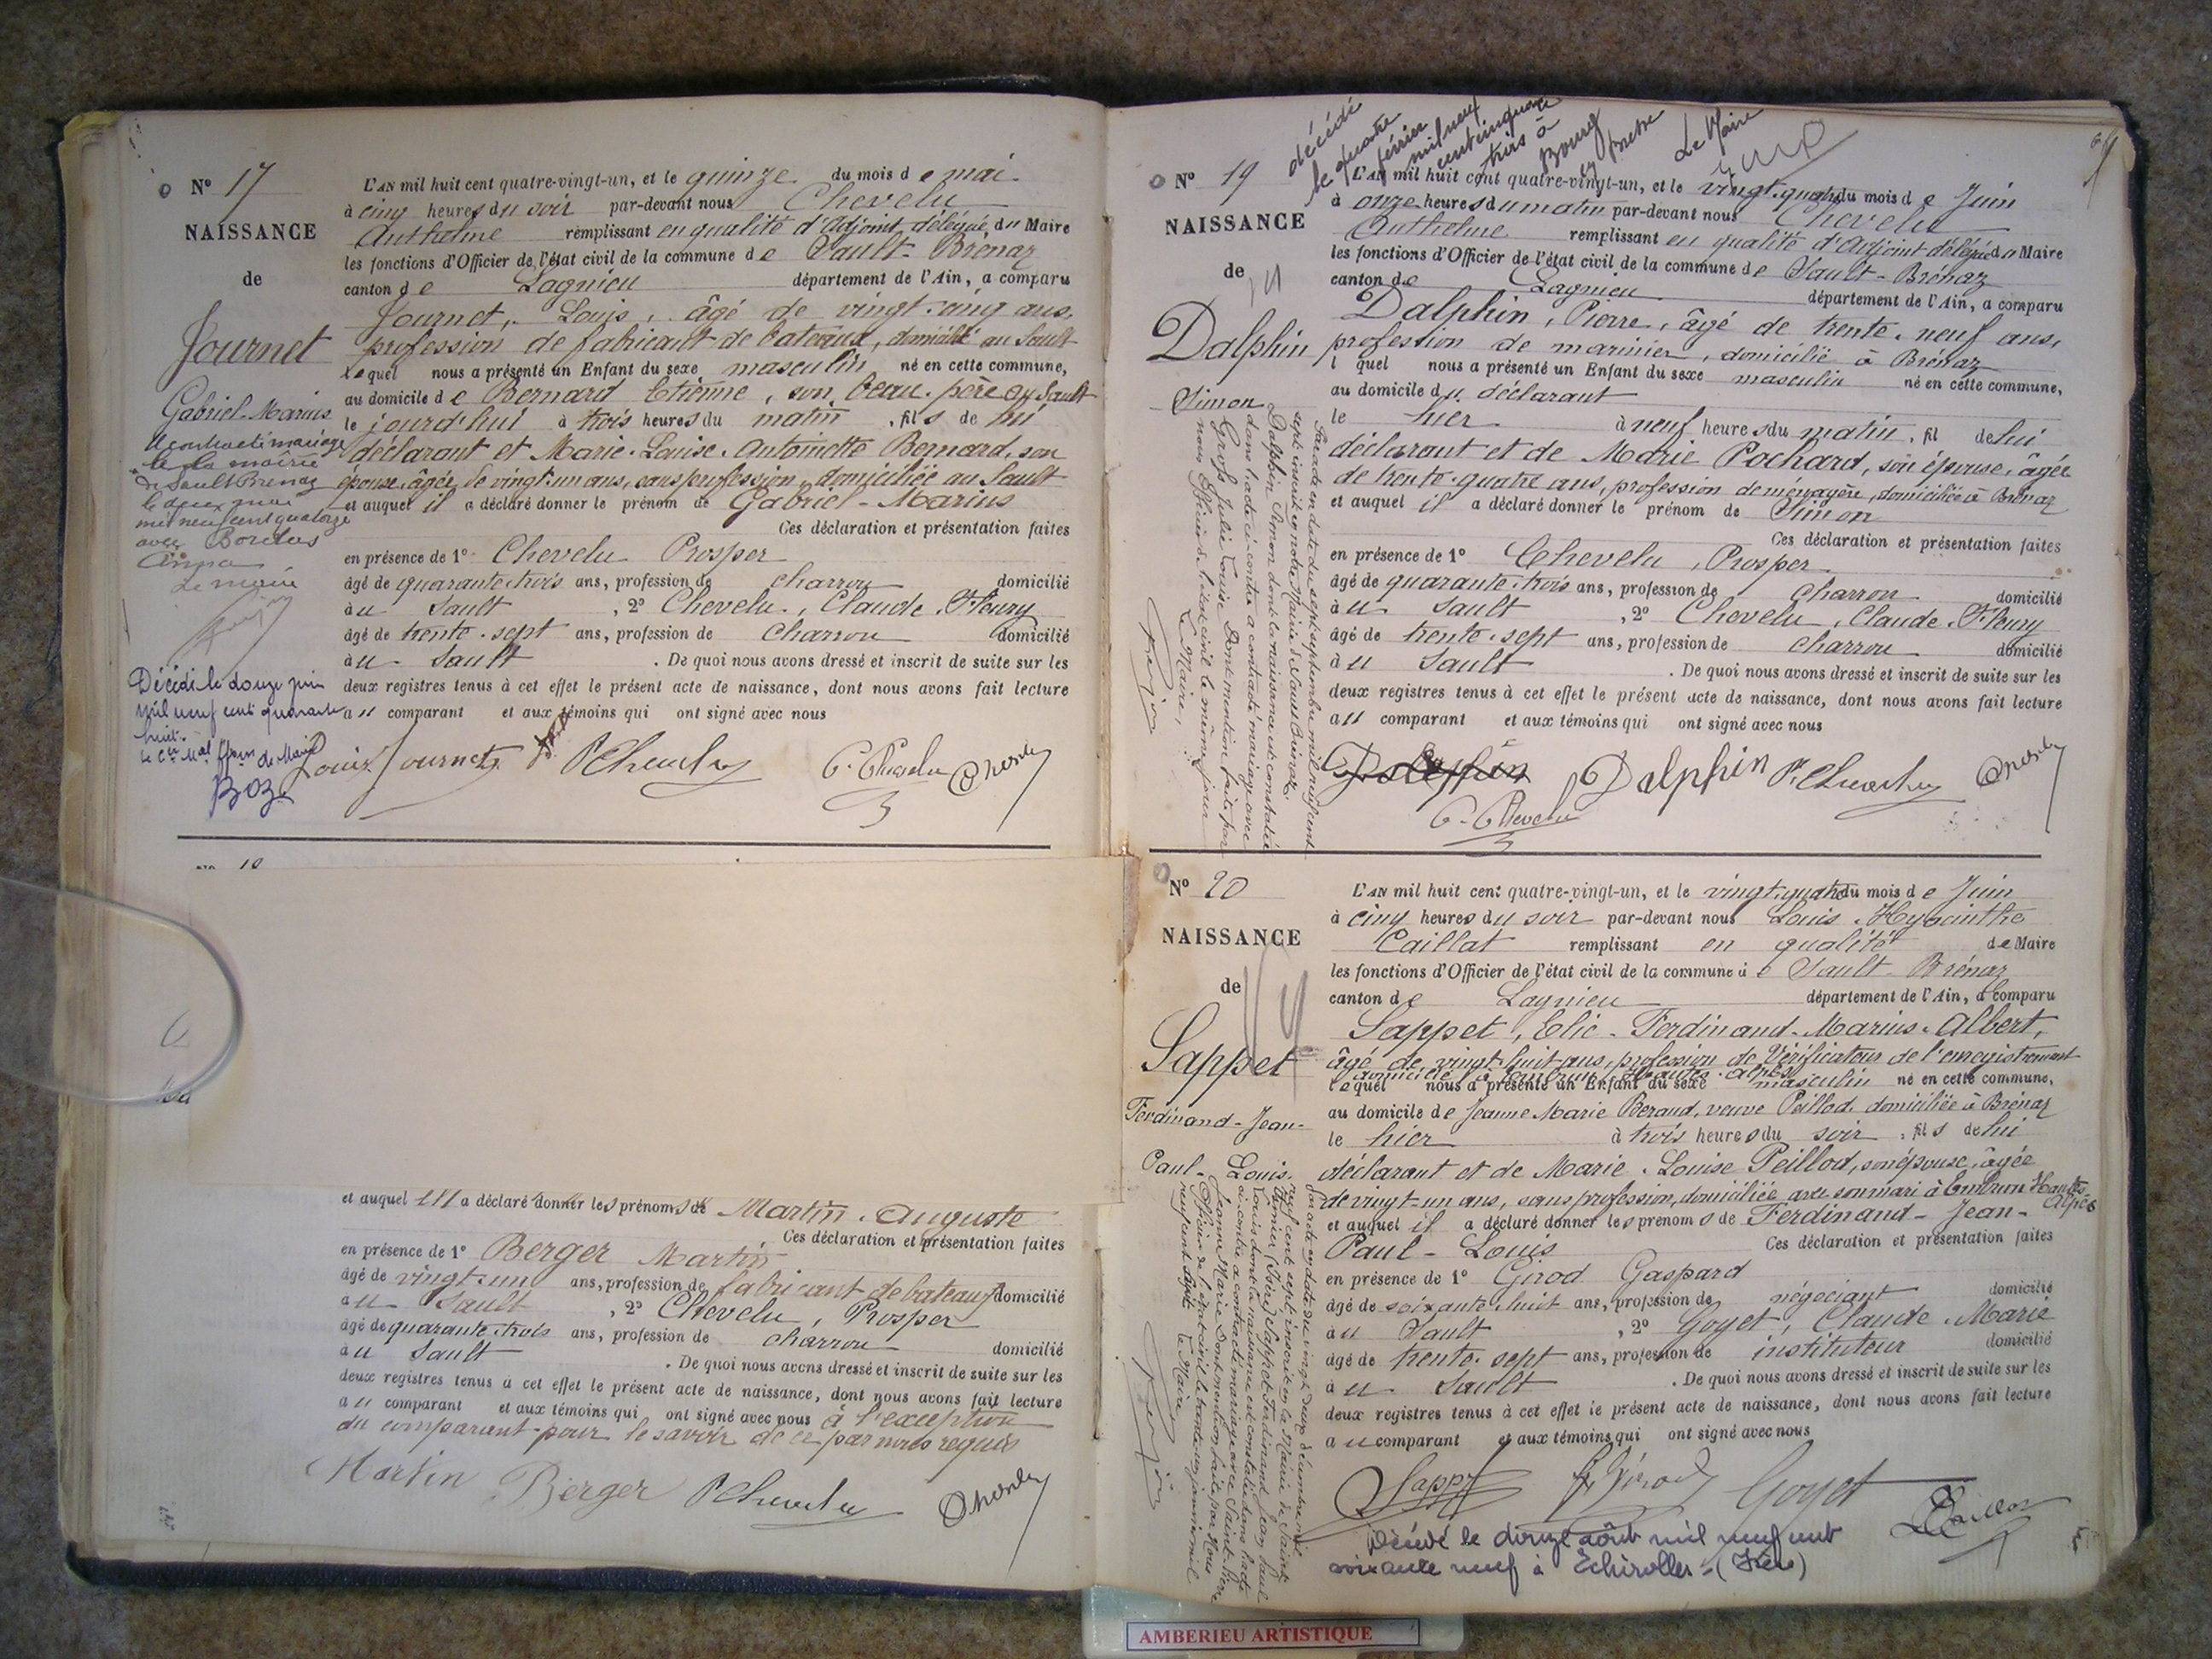 N° 17
NAISSANCE
de
Journet
Gabriel-Marius
a contracté mariage
à la mairie
de Sault-Brénaz
le deux mai
mil neuf cent quatorze
avec
Anna
Le maire
Décédé le douze juin
mil neuf cent quarante
huit.
de Mairie
Boz
L'AN mil huit cent quatre-vingt-un, et le quinze du mois de mai
à cinq heures du soir par-devant nous Chevelu
Anthelme remplissant en qualité d'Adjoint délégué du Maire
les fonctions d'Officier de l'état civil de la commune de Sault-Brénaz
canton de Lagnieu département de l'Ain, a comparu
Journet, Louis, âgé de vingt-cinq ans,
profession de fabricant de bateaux, domicilié au Sault
lequel nous a présenté un Enfant du sexe masculin né en cette commune,
au domicile de Bernard Etienne, son beau-père au Sault
le jourd'hui à trois heures du matin, fils de lui
déclarant et Marie-Louise-Antoinette Bernard, son
épouse, âgée de vingt-un ans, sans profession, domiciliée au Sault
et auquel il a déclaré donner le prénom de Gabriel-Marius
Ces déclaration et présentation faites
en présence de 1° Chevelu Prosper
âgé de quarante-trois ans, profession de charron domicilié
au Sault, 2° Chevelu, Claude-Fleury
âgé de trente-sept ans, profession de charron domicilié
au Sault. De quoi nous avons dressé et inscrit de suite sur les
deux registres tenus à cet effet le présent acte de naissance, dont nous avons fait lecture
au comparant et aux témoins qui ont signé avec nous
Louis Journet P. Chevelu C. Chevelu Chevelu
et auquel il a déclaré donner les prénoms de Martin-Auguste
Ces déclaration et présentation faites
en présence de 1° Berger Martin
âgé de vingt-un ans, profession de fabricant de bateaux domicilié
au Sault, 2° Chevelu, Prosper
âgé de quarante-trois ans, profession de charron domicilié
au Sault. De quoi nous avons dressé et inscrit de suite sur les
deux registres tenus à cet effet le présent acte de naissance, dont nous avons fait lecture
au comparant et aux témoins qui ont signé avec nous à l'exception
du comparant pour le savoir de ce par nous requis
Martin Berger P. Chevelu Chevelu
décédé
le quatre
février
mil neuf
cent cinquante
trois à
Bourg
en Bresse
Le Maire
N° 19
NAISSANCE
de
Dalphin
Simon
Par acte en date du sept septembre mil neuf cent
sept inscrit en notre Mairie de Sault-Brénaz,
Dalphin Simon dont la naissance est constatée
dans l'acte ci-contre a contracté mariage avec
Gros Julie Louise Dont mention faite par
nous Officier de l'état civil le même jour
Le Maire,
L'AN mil huit cent quatre-vingt-un, et le vingt-quatre du mois de Juin
à onze heures du matin par-devant nous Chevelu
Anthelme remplissant en qualité d'Adjoint délégué du Maire
les fonctions d'Officier de l'état civil de la commune de Sault-Brénaz
canton de Lagnieu département de l'Ain, a comparu
Dalphin, Pierre, âgé de trente-neuf ans,
profession de marinier, domicilié à Brénaz
l quel nous a présenté un Enfant du sexe masculin né en cette commune,
au domicile du déclarant
le hier à neuf heures du matin, fil de lui
déclarant et de Marie Pochard, son épouse, âgée
de trente-quatre ans, profession de ménagère, domiciliée à Brénaz
et auquel il a déclaré donner le prénom de Simon
Ces déclaration et présentation faites
en présence de 1° Chevelu, Prosper
âgé de quarante-trois ans, profession de charron domicilié
au Sault, 2° Chevelu, Claude-Fleury
âgé de trente-sept ans, profession de charron domicilié
au Sault. De quoi nous avons dressé et inscrit de suite sur les
deux registres tenus à cet effet le présent acte de naissance, dont nous avons fait lecture
au comparant et aux témoins qui ont signé avec nous
Dalphin P. Chevelu Chevelu
C. Chevelu
N° 20
NAISSANCE
de
Sappet
Ferdinand-Jean-
Paul-Louis
Par acte en date du vingt deux décembre mil
neuf cent sept, inscrit en la Mairie de Saint
(Isère) Sappet Ferdinand Jean Paul
Louis dont la naissance est constatée dans l'acte
ci-contre a contracté mariage avec
Jeanne Marie Dont mention faite par Nous
Officier de l'état civil le janvier mil
neuf cent
Le Maire
L'AN mil huit cent quatre-vingt-un, et le vingt-quatre du mois de Juin
à cinq heures du soir par-devant nous Louis-Hyacinthe
Caillat remplissant en qualité de Maire
les fonctions d'Officier de l'état civil de la commune de Sault-Brénaz
canton de Lagnieu département de l'Ain, a comparu
Sappet, Elie-Ferdinand-Marius-Albert,
âgé de vingt-huit ans, profession de Vérificateur de l'enregistrement
domicilié à Embrun (Hautes-Alpes)
lequel nous a présenté un Enfant du sexe masculin né en cette commune,
au domicile de Jeanne Marie Beraud, veuve Peillod, domiciliée à Brénaz
le hier à trois heures du soir, fils de lui
déclarant et de Marie-Louise Peillod, son épouse, âgée
de vingt-un ans, sans profession, domiciliée avec son mari à Embrun Hautes-Alpes
et auquel il a déclaré donner les prénoms de Ferdinand-Jean-
Paul-Louis Ces déclaration et présentation faites
en présence de 1° Girod Gaspard
âgé de soixante-huit ans, profession de négociant domicilié
au Sault, 2° Goyet, Claude-Marie
âgé de trente-sept ans, profession de instituteur domicilié
au Sault. De quoi nous avons dressé et inscrit de suite sur les
deux registres tenus à cet effet le présent acte de naissance, dont nous avons fait lecture
au comparant et aux témoins qui ont signé avec nous
Sappet G. Girod Goyet Caillat
Décédé le douze août mil neuf cent
soixante neuf à Echirolles (Isère)
AMBERIEU ARTISTIQUE